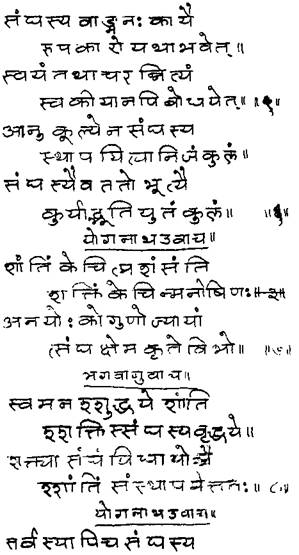 संघस्य वाङ्मनः कायै
रुपकारो यथा भवेत्॥
स्वयं तथा चरन्नित्यं
स्वकीयानपि बोधयेत्॥ ५॥
आनुकूल्येन संघस्य
स्थापयित्वा निजं कुलं॥
संघस्यैव ततो भूत्यै
कुर्याद्भूतियुतं कुलं॥ ॥६॥
योगनाथ उवाच॥
शांतिं केचित्प्रशंसंति
शक्तिं केचिन्मनीषिणः॥
अनयोः को गुणो ज्यायां
त्संघक्षेमकृते विभो॥
भगवानुवाच॥
स्वमनश्शुद्धये शांति
श्शक्तिस्संघस्य वृद्धये॥
शक्त्या संघं विधायोच्चै
श्शांतिं संस्थापयेत्ततः॥
योगनाथ उवाच॥
सर्वस्यापि च संघस्य